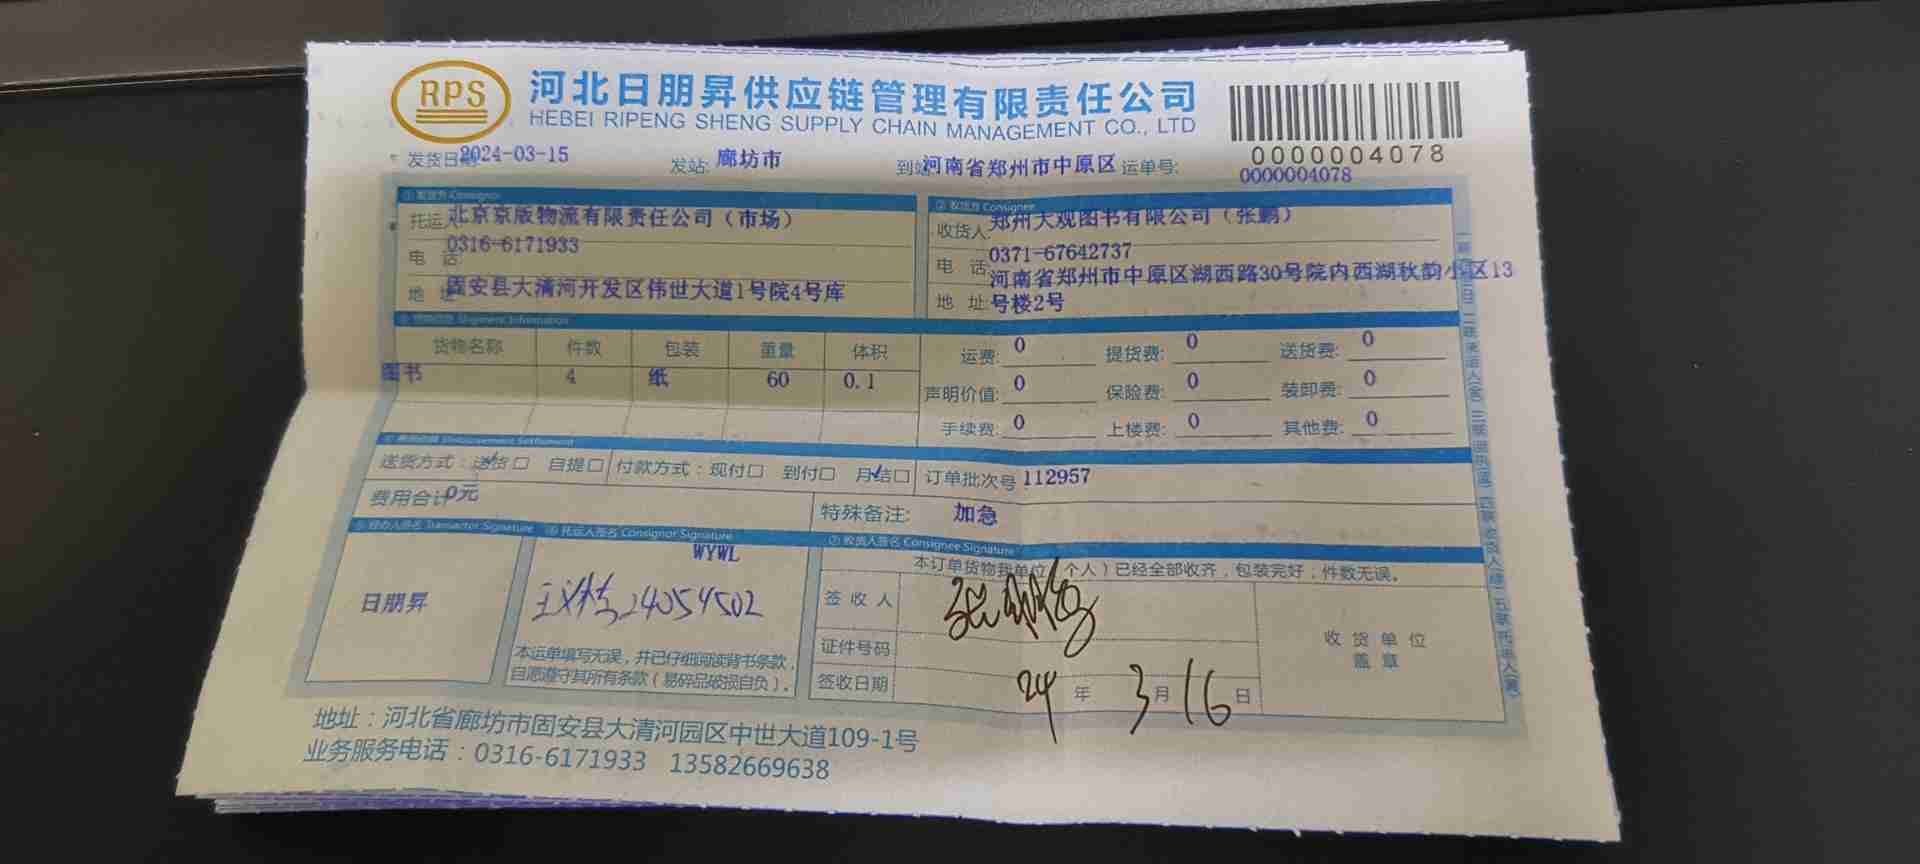 RPS
河北日朋昇供应链管理有限责任公司
HEBEI RIPENG SHENG SUPPLY CHAIN MANAGEMENT CO., LTD
0000004078
发货日期 2024-03-15 发站: 廊坊市 到站 河南省郑州市中原区 运单号: 0000004078
Consignor
② 收货方 Consignee
托运人 北京京版物流有限责任公司（市场）
收货人 郑州大观图书有限公司（张鹏）
电 话 0316-6171933
电 话 0371-67642737
地 址 固安县大清河开发区伟世大道1号院4号库
地 址 河南省郑州市中原区湖西路30号院内西湖秋韵小区13
号楼2号
Shipment Information
货物名称 件数 包装 重量 体积
图书 4 纸 60 0.1
运费: 0 提货费: 0 送货费: 0
声明价值: 0 保险费: 0 装卸费: 0
手续费: 0 上楼费: 0 其他费: 0
送货方式：送货☐ 自提☐ 付款方式：现付☐ 到付☐ 月结☐ 订单批次号 112957
费用合计 0元 特殊备注: 加急
⑤ 经办人签名 Transactor Signature ⑥ 托运人签名 Consignor Signature ⑦ 收货人签名 Consignee Signature
日朋昇
WYWL
24054502
本运单填写无误，并已仔细阅读背书条款，
自愿遵守其所有条款（易碎品破损自负）。
本订单货物我单位（个人）已经全部收齐，包装完好；件数无误。
签 收 人
证件号码
签收日期 24 年 3 月 16 日
收 货 单 位
盖 章
地址：河北省廊坊市固安县大清河园区中世大道109-1号
业务服务电话：0316-6171933 13582669638